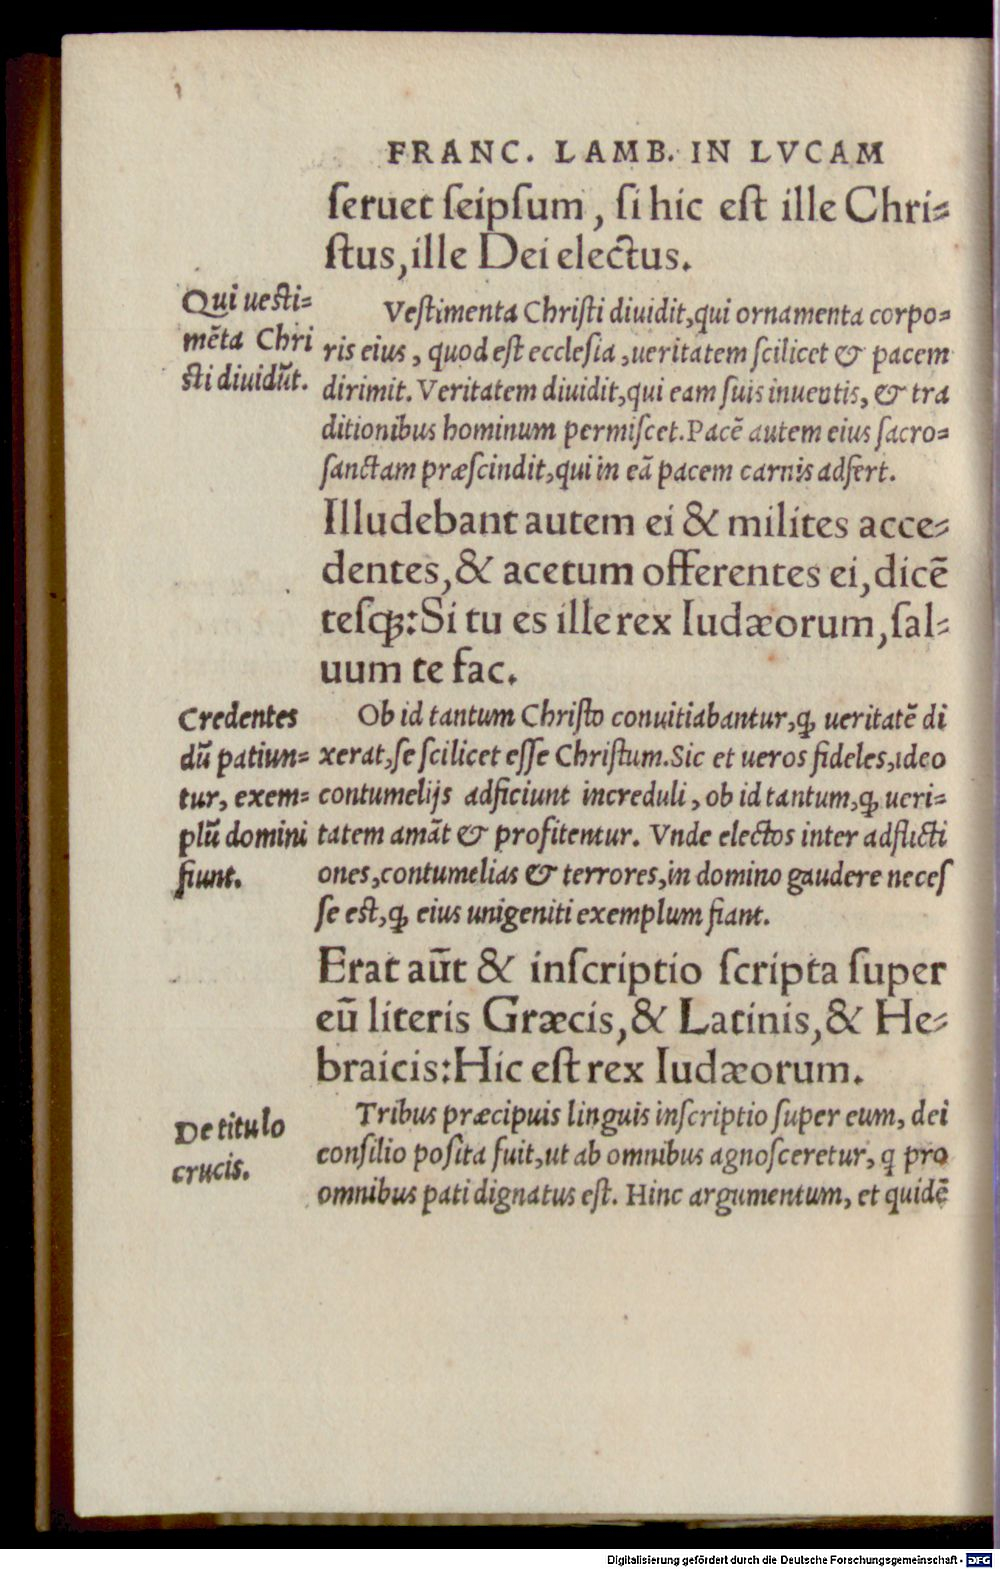 FRANC. LAMB. IN LVCAM
seruet seipsum, si hic est ille Chri=
stus, ille Dei electus.
Qui uesti=
mẽta Chri
sti diuidũt.
Vestimenta Christi diuidit, qui ornamenta corpo=
ris eius, quod est ecclesia, ueritatem scilicet & pacem
dirimit. Veritatem diuidit, qui eam suis inuentis, & tra
ditionibus hominum permiscet. Pacẽ autem eius sacro=
sanctam præscindit, qui in eã pacem carnis adfert.
Illudebant autem ei & milites acce=
dentes, & acetum offerentes ei, dicẽ
tesqꝫ: Si tu es ille rex Iudæorum, sal=
uum te fac.
Credentes
dũ patiun=
tur, exem=
plũ domini
fiunt.
Ob id tantum Christo conuitiabantur, ꝙ ueritatẽ di
xerat, se scilicet esse Christum. Sic et ueros fideles, ideo
contumelijs adficiunt increduli, ob id tantum, ꝙ ueri=
tatem amãt & profitentur. Vnde electos inter adflicti
ones, contumelias & terrores, in domino gaudere neces
se est, ꝙ eius unigeniti exemplum fiant.
Erat aũt & inscriptio scripta super
eũ literis Græcis, & Latinis, & He=
braicis: Hic est rex Iudæorum.
De titulo
crucis.
Tribus præcipuis linguis inscriptio super eum, dei
consilio posita fuit, ut ab omnibus agnosceretur, q pro
omnibus pati dignatus est. Hinc argumentum, et quidẽ
Digitalisierung gefördert durch die Deutsche Forschungsgemeinschaft - DFG